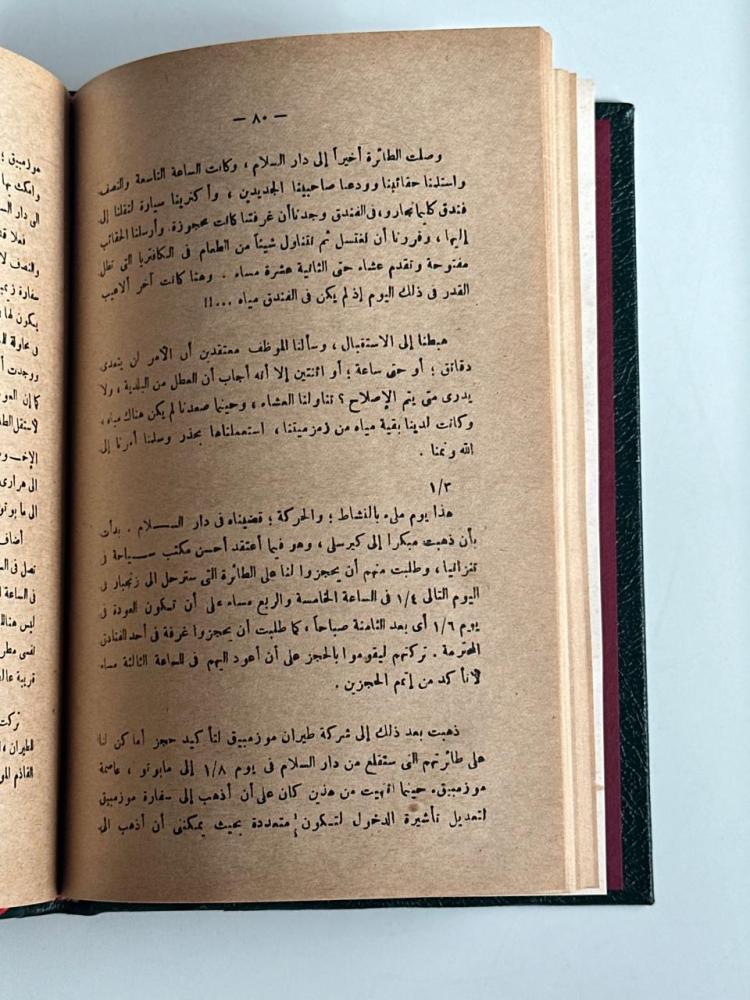 — ٨٠ —
وصلت الطائرة أخيراً إلى دار السلام ، وكانت الساعة التاسعة والنصف
واستلمنا حقائبنا وودعنا صاحبينا الجديدين ، وأكترينا سيارة لنقلنا إلى
فندق كليمانجارو، فى الفندق وجدنا أن غرفتنا كانت محجوزة. وأرسلنا الحقائب
إليها ، وقررنا أن نغتسل ثم نتناول شيئاً من الطعام فى الكافتريا التى تظل
مفتوحة وتقدم عشاء حتى الثانية عشرة مساء . وهنا كانت آخر ألاعيب
القدر فى ذلك اليوم إذ لم يكن فى الفندق مياه ...!!
هبطنا إلى الاستقبال ، وسألنا الموظف معتقدين أن الأمر لن يتعدى
دقائق ؛ أو حتى ساعة ؛ أو اثنتين إلا أنه أجاب أن العطل من البلدية ، ولا
يدرى متى يتم الإصلاح ؟ تناولنا العشاء ، وحينما صعدنا لم يكن هناك مياه ،
وكانت لدينا بقية مياه من زمزميتنا ، استعملناها بحذر وسلمنا أمرنا إلى
الله ونمنا .
١/٣
هذا يوم ملىء بالنشاط ؛ والحركة ؛ قضيناه فى دار الســـلام . بدأت
بأن ذهبت مبكرا إلى كيرسلى ، وهو فيما أعتقد أحسن مكتب سـياحة فى
تنزانيا ، وطلبت منهم أن يحجزوا لنا على الطائرة التى سترحل الى زنجبار فى
اليوم التالى ١/٤ فى الساعة الخامسة والربع مساء على أن تكون العودة فى
يوم ١/٦ أى بعد الثامنة صباحاً ، كما طلبت أن يحجزوا غرفة فى أحد الفنادق
المحترمة . تركتهم ليقوموا بالحجز على أن أعود اليهم فى الساعة الثالثة مساء
لأتأكد من إتمم الحجزين .
ذهبت بعد ذلك إلى شركة طيران موزمبيق لتأكيد حجز أماكن لنا
على طائرتهم التى ستقلع من دار السلام فى يوم ١/٨ إلى مابوتو ، عاصمة
موزمبيق. حينما انتهيت من هذين كان على أن أذهب إلى سفارة موزمبيق
لتعديل تأشيرة الدخول لتكون متعددة بحيث يمكننى أن أذهب الى